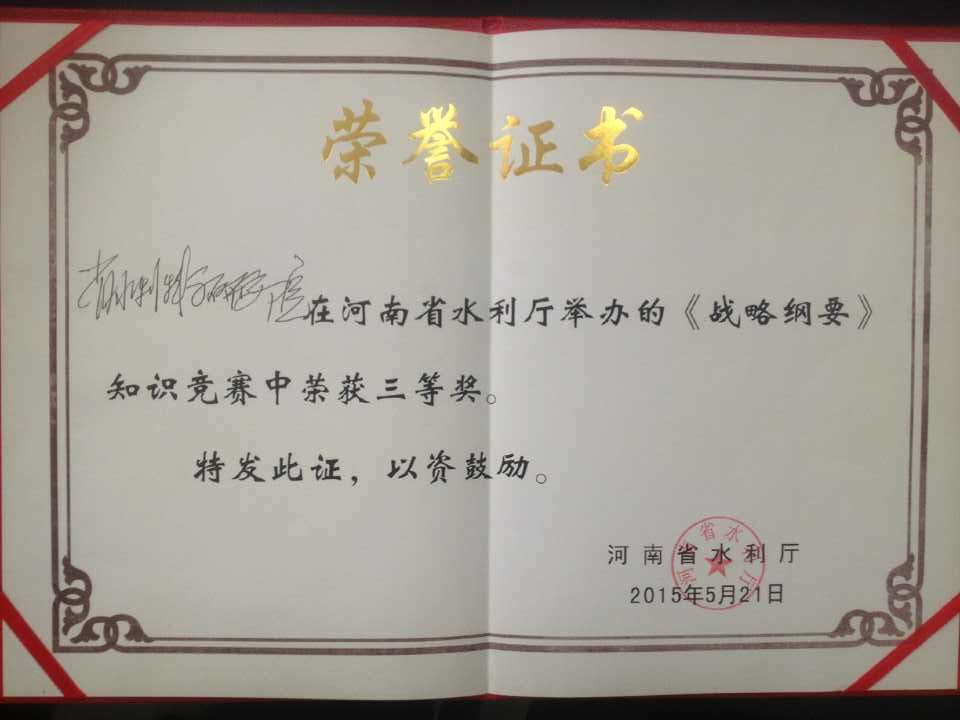 荣誉证书
省水利科学研究院在河南省水利厅举办的《战略纲要》
知识竞赛中荣获三等奖。
特发此证，以资鼓励。
河南省水利厅
河南省水利厅
2015年5月21日